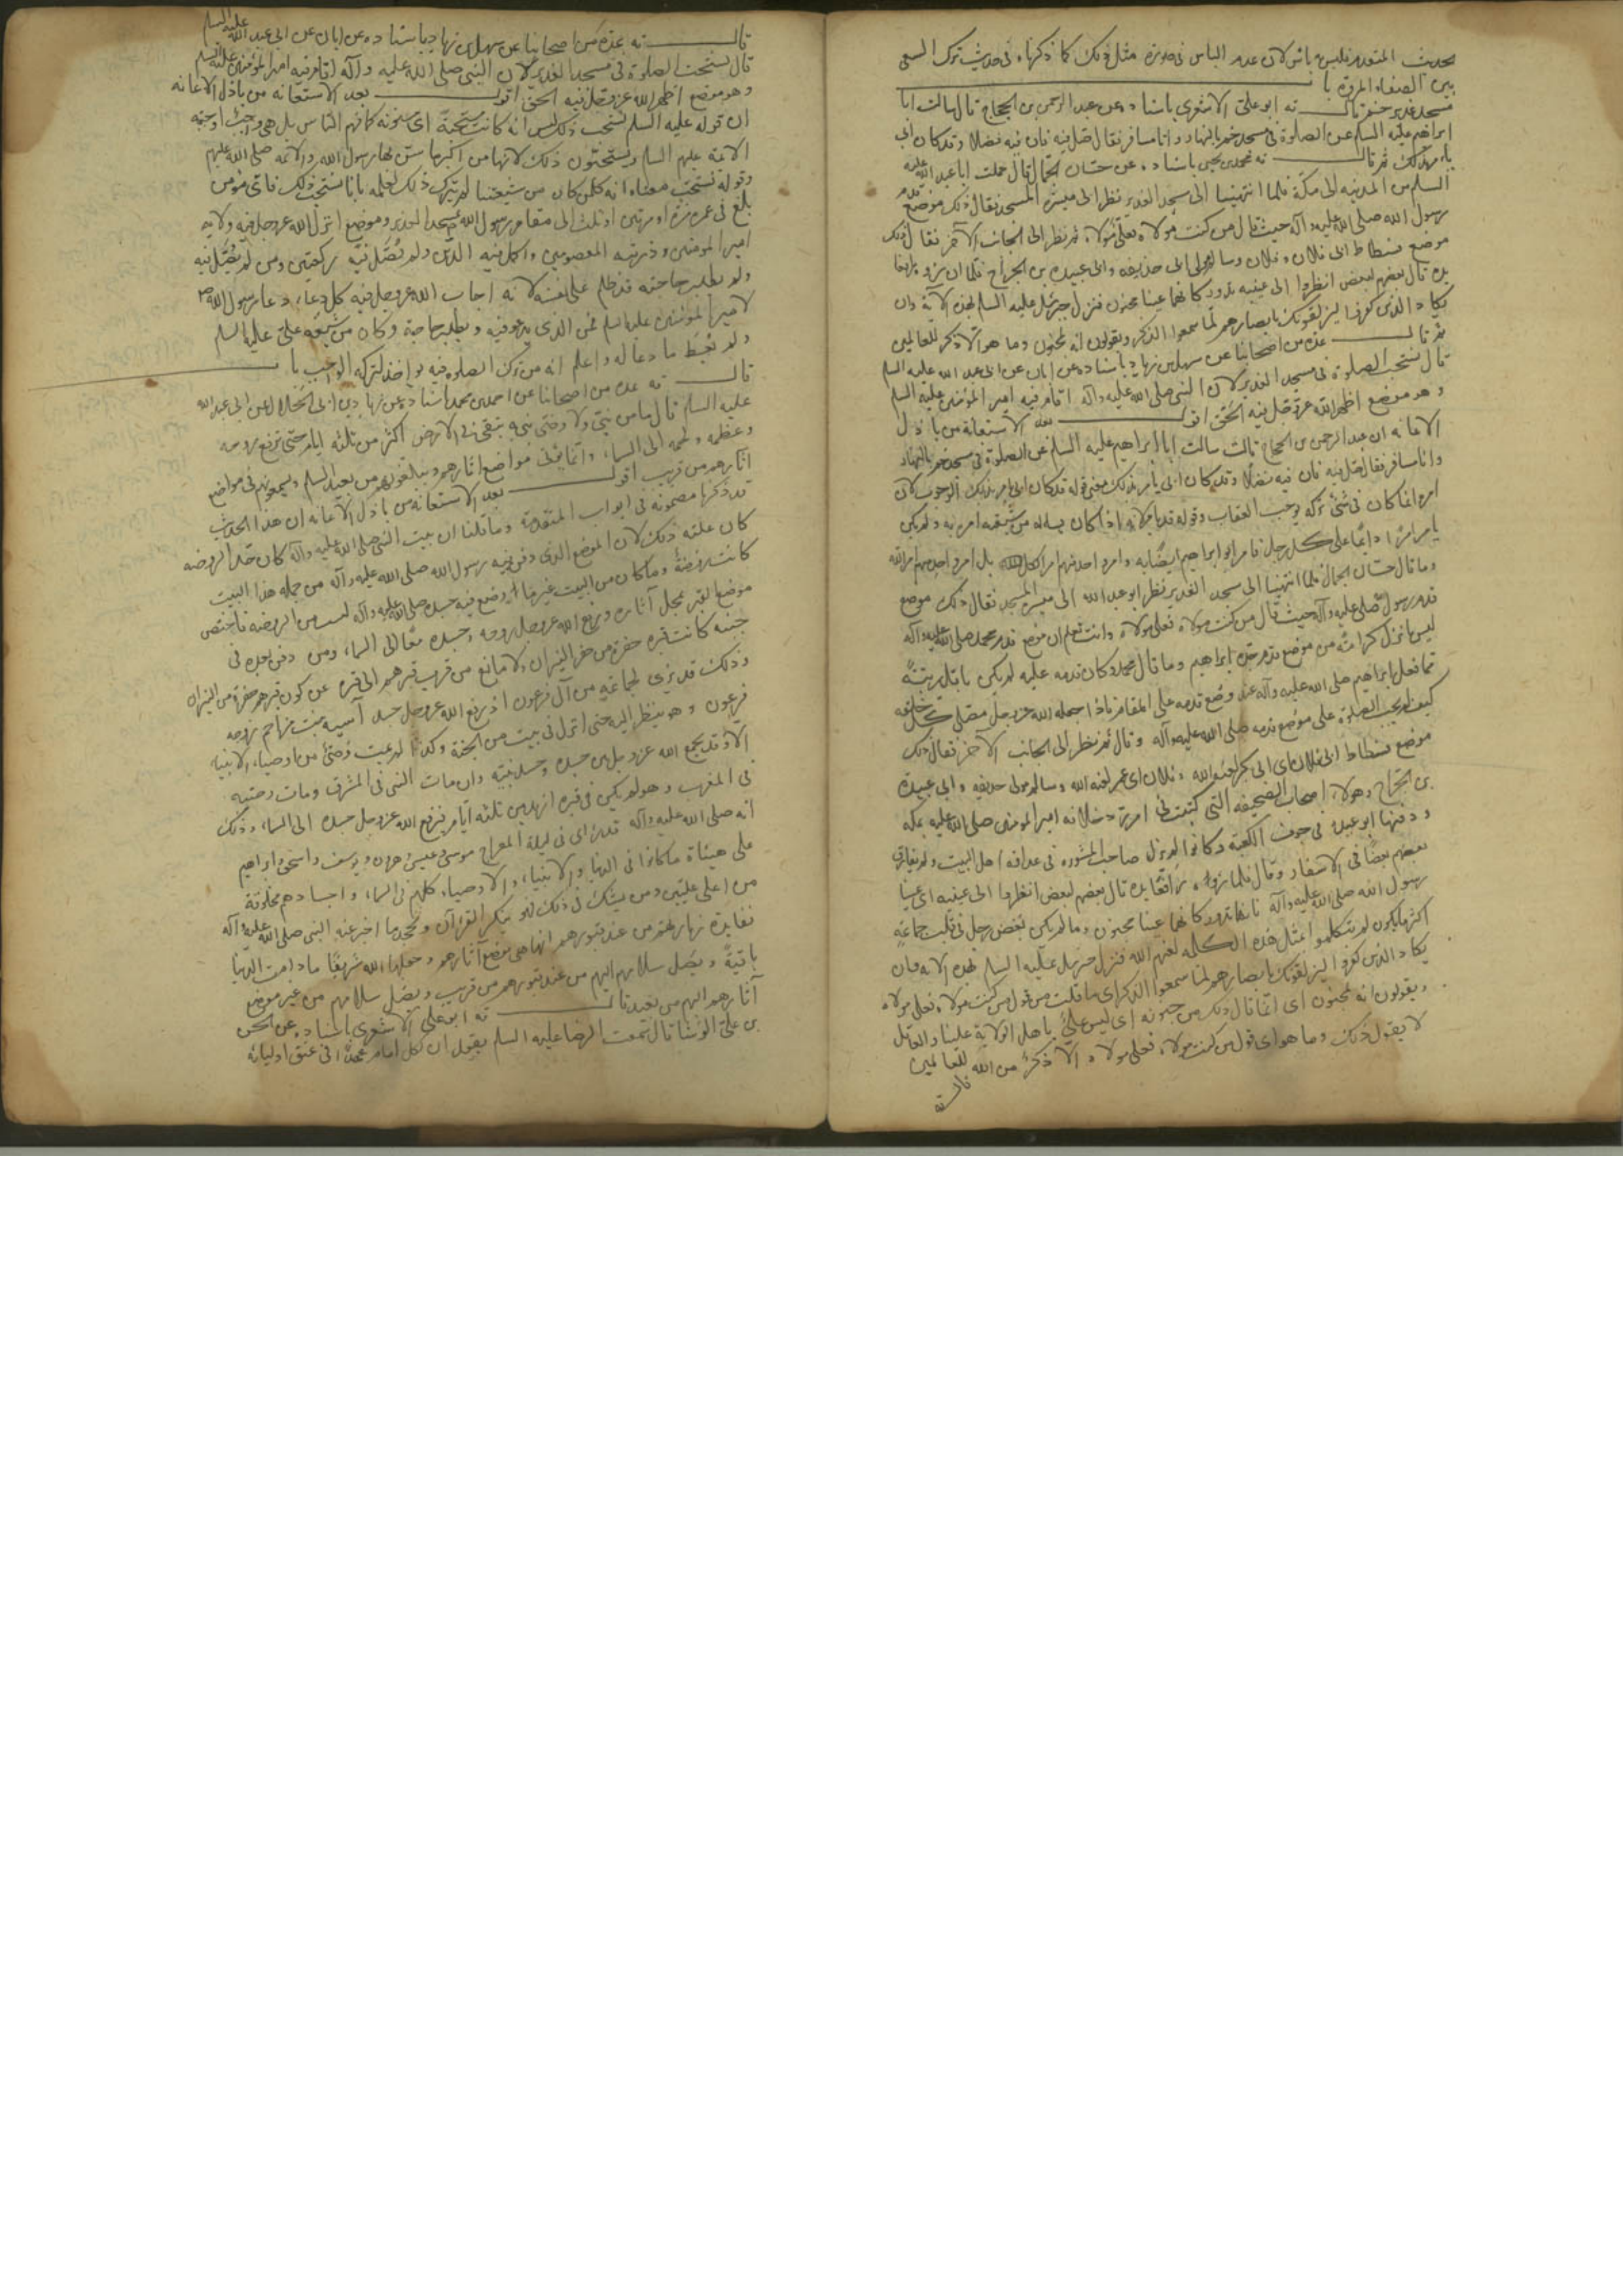 بحديث المتقدم فليس به باس لان عدم الباس في صورة مثل ذلك كما ذكرناه في حديث ترك السعى
بين الصفا والمروة باب
مسجد غدير خم قال ثه ابو علي الاشعري باسناده عن عبد الرحمن بن الحجاج قال سالت ابا
ابراهيم عليه السلم عن الصلوة في مسجد خم بالنهار وانا مسافر فقال صل فيه فان فيه فضلا وقد كان ابي
يامر بذلك ثم قال ثه محمد بن يحيى باسناده عن حسان الجمال قال حملت ابا عبد الله عليه
السلم من المدينه الى مكة فلما انتهينا الى مسجد الغدير نظر الى ميسرة المسجد فقال ذلك موضع قدم
رسول الله صلى الله عليه وآله حيث قال من كنت مولاه فعلي مولاه ثم نظر الى الجانب الآخر فقال ذلك
موضع فسطاط ابى فلان وفلان وسالم مولى ابى حذيفه وابى عبيدة بن الجراح فلما ان راوه رافعا
يده قال بعضهم لبعض انظروا الى عينيه تدور كانهما عينا مجنون فنزل جبرئيل عليه السلم بهذه الآية وان
يكاد الذين كفروا ليزلقونك بابصارهم لما سمعوا الذكر ويقولون انه لمجنون وما هو الا ذكر للعالمين
ثم قال عدة من اصحابنا عن سهل بن زياد باسناده عن ابان عن ابى عبد الله عليه السلم
قال تستحب الصلوة في مسجد الغدير لان النبى صلى الله عليه وآله اقام فيه امير المؤمنين عليه السلم
وهو موضع اظهر الله عز وجل فيه الحق اقول بعد الاستعانة من باذل
الاعانه ان عبد الرحمن بن الحجاج قال سالت ابا ابراهيم عليه السلم عن الصلوة في مسجد خم بالنهار
وانا مسافر فقال صل فيه فان فيه فضلا وقد كان ابى يامر بذلك معنى قوله قد كان ابى يامر بذلك الوجوب لان
امره انما كان في شئ تركه يوجب العقاب وقوله قد يامر لانه اذا كان يساله من شيعته امر به ولم يكن
يامر امرا دائما على كل رجل فامر ابو ابراهيم ايضا به وامر واحد منهم امر لكل بل امر واحد منهم امر الله
وما قال حسان الجمال فلما انتهينا الى مسجد الغدير نظر ابو عبد الله الى ميسرة المسجد فقال ذلك موضع
قدم رسول صلى عليه وآله حيث قال من كنت مولاه فعلى مولاه وانت تعلم ان موضع قدم محمد صلى الله عليه وآله
ليس بانزل كرامته من موضع قدم جده ابراهيم وما قال محمد وكان قدمه عليه لم يكن باقل رتبة
مما فعل ابراهيم صلى الله عليه وآله عند وضع قدمه على المقام فاذا جعله الله عز وجل مصلى كل خليقه
كيف لم يجب الصلوة على موضع قدمه صلى الله عليه وآله وقال ثم نظر الى الجانب الآخر فقال ذلك
موضع فسطاط ابى فلان اى ابى بكر لعنه الله وفلان اى عمر لعنه الله وسالم مولى حذيفه وابى عبيدة
بن الجراح وهولاء اصحاب الصحيفه التي كتبت في امرة وخلافه امير المومنين صلى الله عليه بمكه
ودفنها ابو عبيدة في جوف الكعبة وكانوا لم يزل صاحب المشوره في عداوة اهل البيت ولم يفارق
بعضهم بعضا في الاسفار وقال فلما راوه رافعا يده قال بعضهم لبعض انظروا الى عينيه اى عينا
رسول الله صلى الله عليه وآله فانها تدور كانهما عينا مجنون وما لم يكن بغض رجل في قلب جماعة
اكثر ما يكون لم يتكلموا بمثل هذه الكلمه لعنهم الله فنزل جبرئيل عليه السلم بهذه الايه وان
يكاد الذين كفروا ليزلقونك بابصارهم لما سمعوا الذكر اى ما قلت من قول من كنت مولاه فعلى مولاه
ويقولون انه لمجنون اى انما قال ذلك من جنونه اى ليس علي باهل الولاية علينا والعاقل
لا يقول ذلك وما هو اى قول من كنت مولاه فعلى مولاه الا ذكر من الله للعالمين
قال ثه
قال ثه عدة من اصحابنا عن سهل بن زياد باسناده عن ابان عن ابى عبد الله عليه السلم
قال تستحب الصلوة في مسجد الغدير لان النبى صلى الله عليه وآله اقام فيه امير المؤمنين عليه السلم
وهو موضع اظهر الله عز وجل فيه الحق اقول بعد الاستعانه من باذل الاعانه
ان قوله عليه السلم تستحب ذلك ليس انه كانت مستحبة اى مسنونه كما فهم الناس بل هى واجب اوجبته
الائمة عليهم السلم ويستحبون ذلك لانها من اكبرها سنن بها رسول الله والائمه صلى الله عليهم
وقوله تستحب معناه انه كل من كان من شيعتنا لم يترك ذلك لعلمه بانا نستحب ذلك فاى مؤمن
بلغ في عمره مرة او مرتين او ثلث الى مقام رسول الله بمسجد الغدير وموضع انزل الله عز وجل فيه ولاية
امير المومنين وذريته المعصومين واكمل فيه الدين ولم يصل فيه ركعتين ومن لم يصل فيه
ولم يطلب حاجته فقد ظلم على نفسه لانه اجاب الله عز وجل فيه كل دعاء دعا رسول الله ص
لامير المؤمنين عليه السلم فمن الذي يدعو فيه ويطلب حاجة وكان من شيعة على عليه السلم
ولم يعط ما دعا له واعلم انه من ترك الصلوة فيه يواخذ لتركه الواجب باب
قال ثه عدة من اصحابنا عن احمد بن محمد باسناده عن زياد بن ابى الحلال عن ابى عبد الله
عليه السلم قال ما من نبي ولا وصى نبي يبقى في الارض اكثر من ثلثه ايام حتى ترفع روحه
وعظمه ولحمه الى السماء وانما يؤتى مواضع اثارهم ويبلغونهم من بعيد السلم ويسمعونهم في مواضع
اثارهم من قريب اقول بعد الاستعانه من باذل الاعانه ان هذا الحديث
قد ذكرنا مضمونه في ابواب المتقدمة وما قلنا ان بيت النبى صلى الله عليه وآله كان قدر الروضه
كان علته ذلك لان الموضع الذى دفن فيه رسول الله صلى الله عليه وآله من جمله هذا البيت
كانت روضة وما كان من البيت غير ما لم يوضع فيه جسده صلى الله عليه وآله ليس من الروضه فاختص
موضع القبر بمحل آثاره ورفع الله عز وجل روحه وجسده معا الى السماء ومن دفن بعده في
جنبه كانت قبره حفرة من حفر النيران ولا مانع من قرب قبرهم الى قبره عن كون قبرهم حفرة من النيران
وذلك قد يرى لجماعة من آل فرعون اذ رفع الله عز وجل جسد آسيه بنت مزاحم زوجه
فرعون وهو ينظر اليه حتى انزل في بيت من الجنة وكذا لم يمت وصى من اوصياء الانبياء
الا وقد يجمع الله عز وجل بين جسده وجسد نبيه وان مات النبى في المشرق ومات وصيه
في المغرب وهو لم يكن في قبره ازيد من ثلثة ايام فيرفع الله عز وجل جسده الى السماء وذلك
انه صلى الله عليه وآله قد راى في ليلة المعراج موسى وعيسى وهرون ويوسف واسحق وابراهيم
على هيئاة ما كانوا في الدنيا والانبياء والاوصياء كلهم في السماء واجسادهم مخلوقة
من اعلى عليين ومن يشك في ذلك فهو ينكر القرآن ويجحد ما اخبر عنه النبى صلى الله عليه وآله
ففايدة زيارتهم من عند قبورهم انها هى موضع آثارهم وجعلها الله شريفا ما دامت الدنيا
باقية ويصل سلامهم اليهم من عند قبورهم من قريب ويصل سلامهم من غير موضع
آثارهم اليهم من بعيد قال ثه ابو على الاشعرى باسناده عن الحسن
بن على الوشا قال سمعت الرضا عليه السلم يقول ان لكل امام عهدا في عنق اوليائه